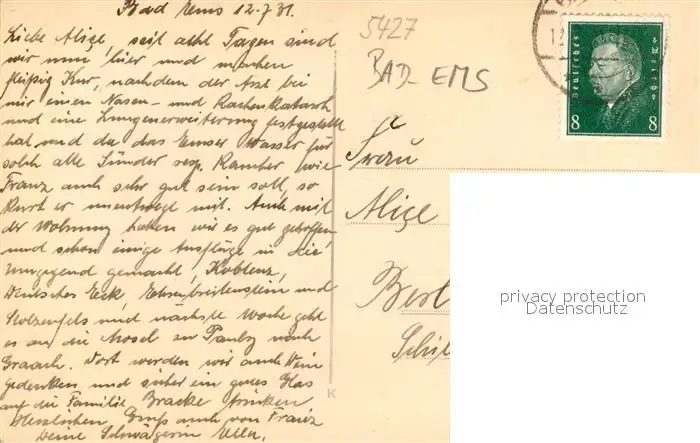 Bad Ems 12.7.31.
Liebe Alice, seit acht Tagen sind
wir nun hier und machen
fleißig Kur, nachdem der Arzt bei
mir einen Nasen- und Rachenkatarrh
und eine Lungenerweiterung festgestellt
hat und da das Emser Wasser für
solch alte Sünder resp. Raucher wie
Franz auch sehr gut sein soll, so
kurt er unentwegt mit. Auch mit
der Wohnung haben wir es gut getroffen
und schon einige Ausflüge in die
Umgegend gemacht, Koblenz,
Deutsches Eck, Ehrenbreitenstein und
Stolzenfels und nächste Woche geht
es an die Mosel zu Pauly nach
Graach. Dort werden wir auch Dein
gedenken und sicher ein gutes Glas
auf die Familie Bracke trinken
Herzlichen Gruß auch von Franz
Deine Schwägerin Ellen.
5427
BAD-EMS
Deutsches Reich
8 8
12
Frau
Alice
Berl
Schil
privacy protection
Datenschutz
K